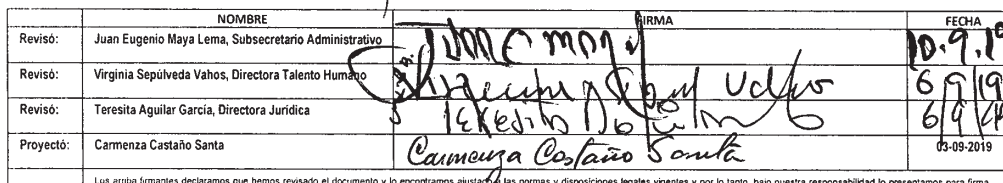 NOMBRE FIRMA FECHA
Revisó: Juan Eugenio Maya Lema, Subsecretario Administrativo 10.9.19
Revisó: Virginia Sepúlveda Vahos, Directora Talento Humano 6/9/19
Revisó: Teresita Aguilar García, Directora Jurídica 6/9/19
Proyectó: Carmenza Castaño Santa Carmenza Castaño Santa 03-09-2019
Los arriba firmantes declaramos que hemos revisado el documento y lo encontramos ajustado a las normas y disposiciones legales vigentes y por lo tanto, bajo nuestra responsabilidad lo presentamos para firma.